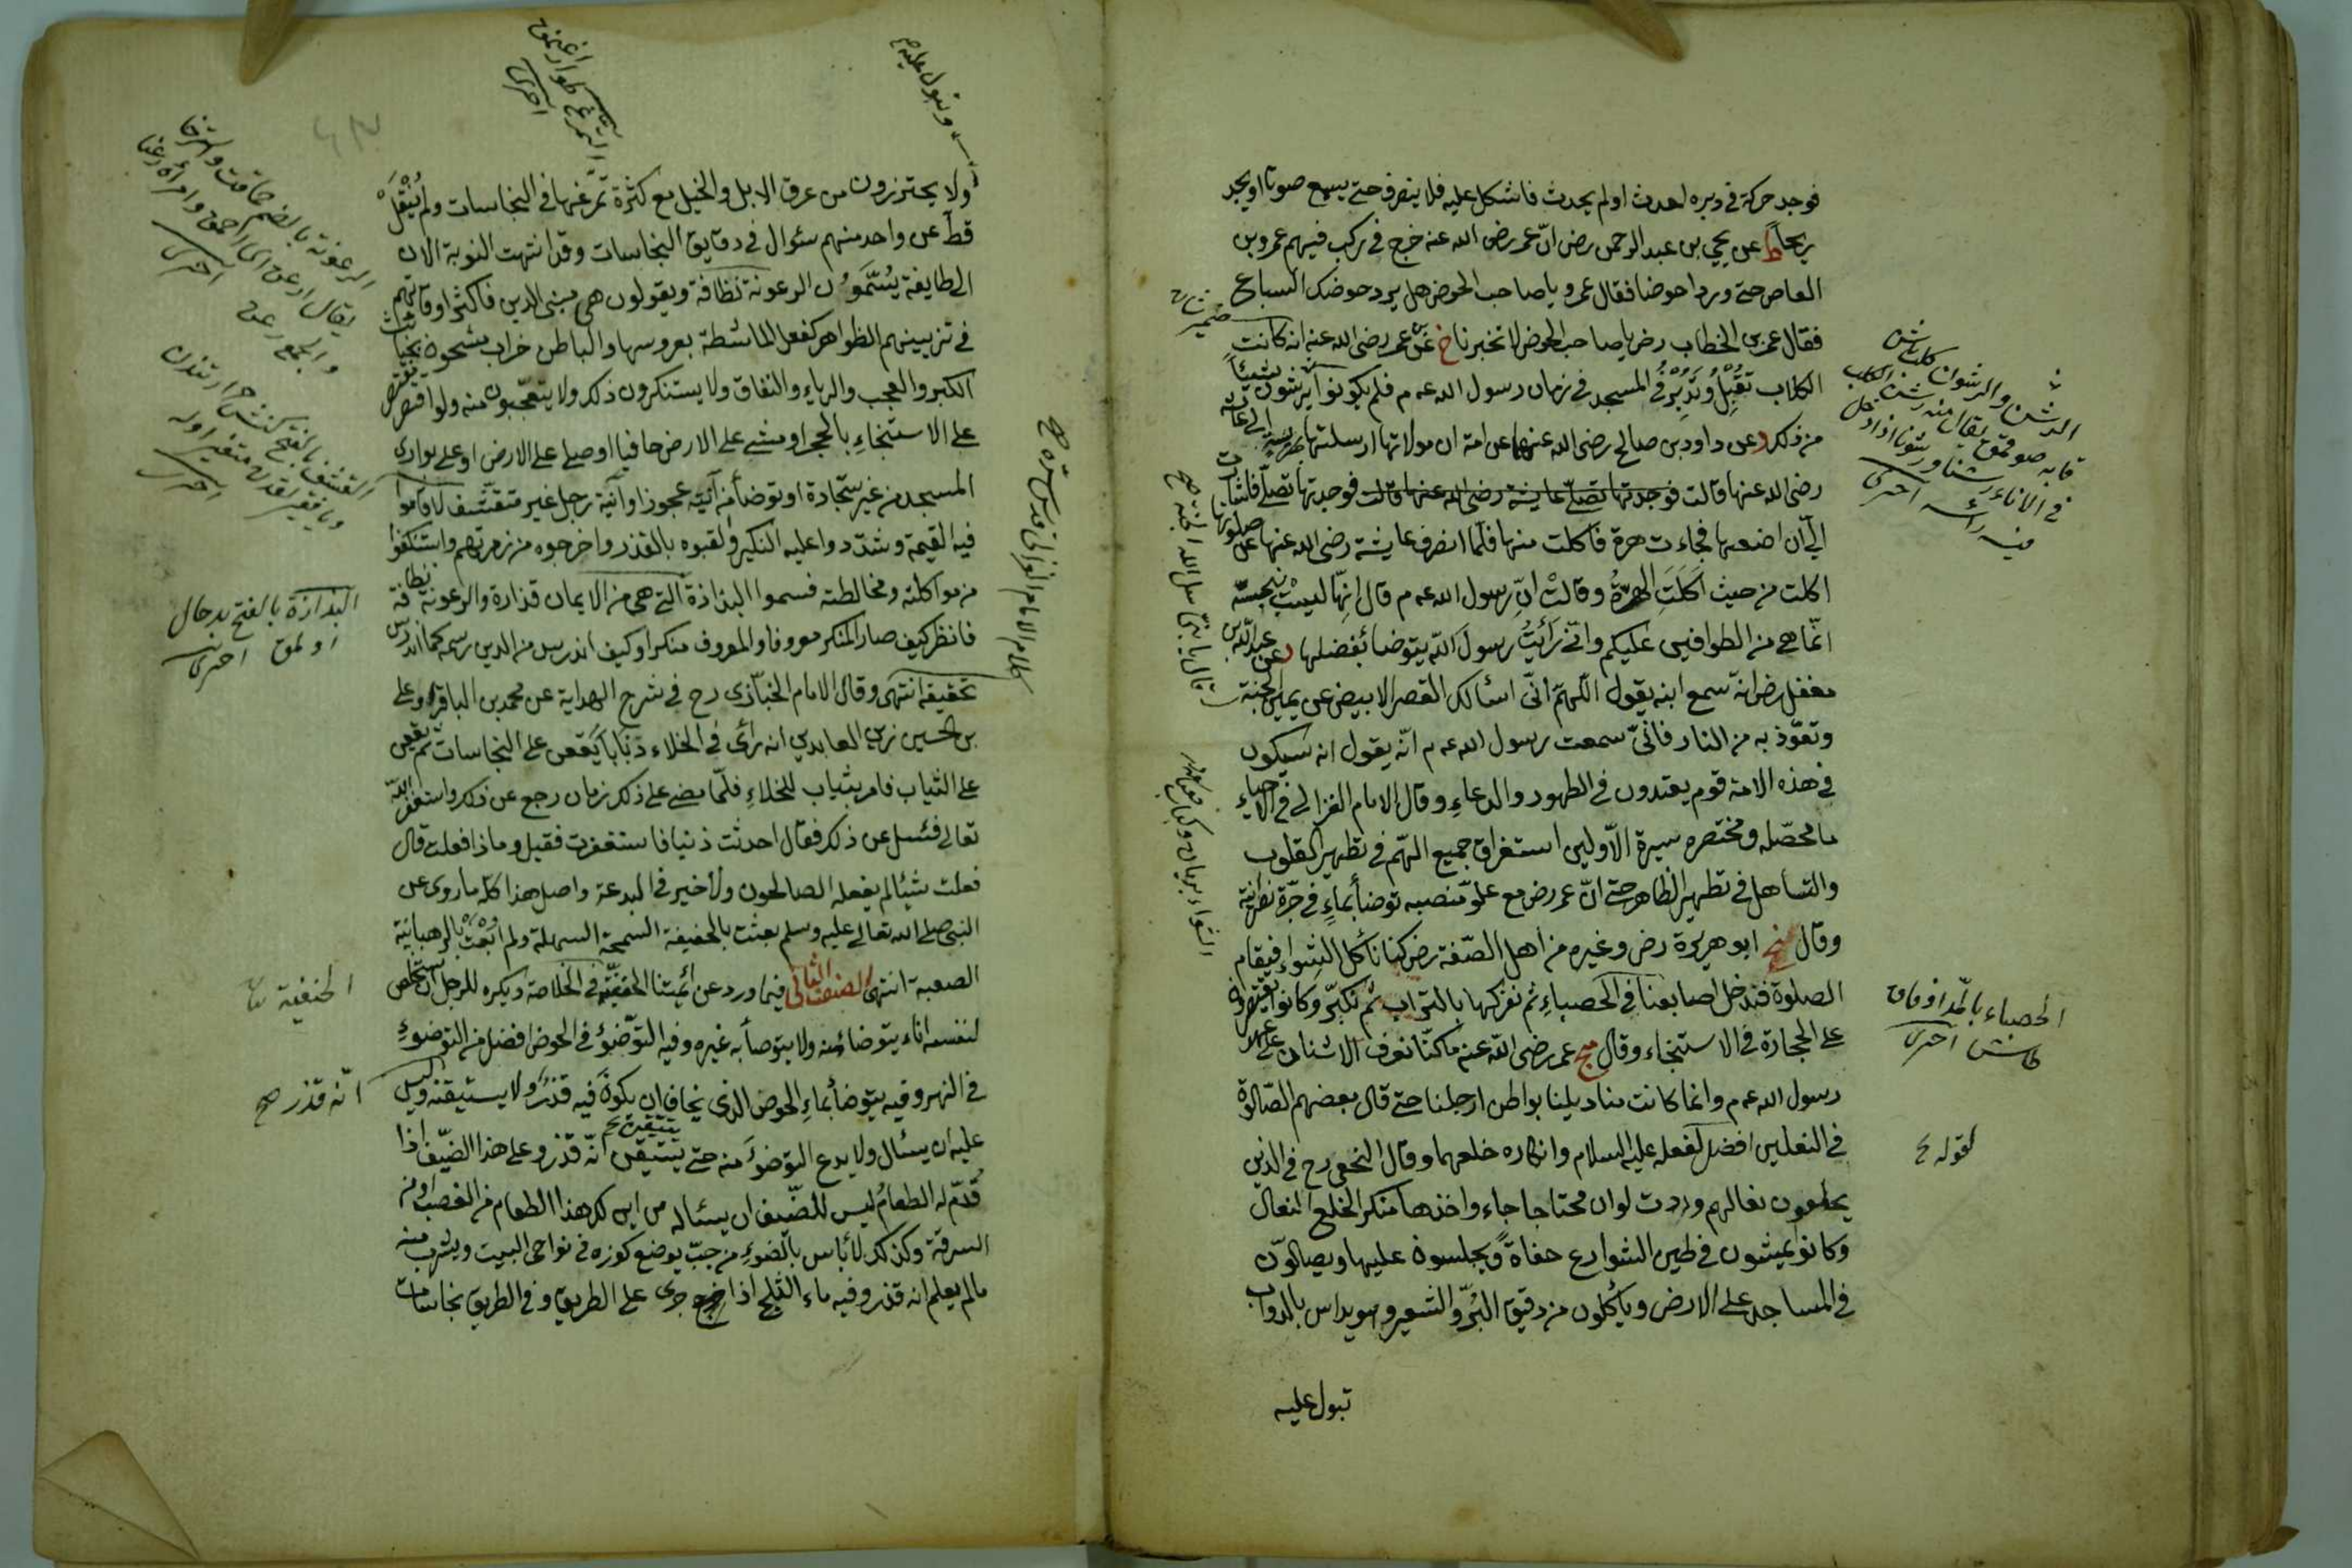 فوجد حركة في دبره احدث او لم يحدث فاشكل عليه فلا ينصرف حتى يسمع صوتا او يجد
ريحا ط عن يحي بن عبد الرحمن رض ان عمر رضى الله عنه خرج في ركب فيهم عمرو بن
العاص حتى وردا حوضا فقال عمرو يا صاحب الحوض هل يرد حوضك السباع
فقال عمر بن الخطاب رض يا صاحب الحوض لا تخبرنا خ عن عمر رضى الله عنه انه كانت
الكلاب تقبل وتدبر في المسجد في زمان رسول الله عم فلم يكونوا يرشون شيئا
من ذلك د عن داود بن صالح رضى الله عنهما عن امه ان مولاتها ارسلتها بهريسة الى عائشة
رضى الله عنها قالت فوجدتها تصلى عايشة رضى الله عنها قالت فوجدتها تصلى فاشارت
الى ان اضعها فجاءت هرة فاكلت منها فلما انصرف عايشة رضى الله عنها عن صلوتها
اكلت من حيث اكلت الهرة وقالت ان رسول الله عم قال انها ليست بنجسة
انما هي من الطوافين عليكم واني رأيت رسول الله يتوضأ بفضلها د عن عبد الله بن
مغفل رض انه سمع ابنه يقول اللهم اني اسألك القصر الابيض عن يمين الجنة
وتعوذ به من النار فاني سمعت رسول الله عم انه يقول انه سيكون
في هذه الامة قوم يعتدون في الطهور والدعاء وقال الامام الغزالي في الاحياء
ما محصله ومختصره سيرة الاولين استغراق جميع الهم في تطهير القلوب
والتساهل في تطهير الظاهر حتى ان عمر رض مع علو منصبه توضأ بماء في جرة نصرانية
وقال ابو هريرة رض وغيره من اهل الصفة رض كنا نأكل الشواء فيقام
الصلوة فندخل اصابعنا في الحصباء ثم نفركها بالتراب ثم نكبر وكانوا يقتصرون
على الحجارة في الاستنجاء وقال عمر رضى الله عنه ما كنا نعرف الاشنان على عهد
رسول الله عم وانما كانت مناديلنا بواطن ارجلنا حتى قال بعضهم الصلوة
في النعلين افضل لفعله عليه السلام وانكاره خلعهما وقال النخعي رح في الذين
يخلعون نعالهم وددت لو ان محتاجا جاء واخذها منكر الخلع النعال
وكانوا يمشون في طين الشوارع حفاة ويجلسون عليها ويصلون
في المساجد على الارض ويأكلون من دقيق البر والشعير وهو يداس بالدواب
تبول عليه
قال يا بني سل الله الجنة صح
الحصباء بالمد اوفاق طاش اخترى
لقوله
وتبول عليه
ولا يحترزون من عرق الابل والخيل مع كثرة تمرغها في النجاسات ولم ينقل
قط عن واحد منهم سئوال في دقايق النجاسات وقد انتهت النوبة الان
الى طايفة يسمون الرعونة نظافة ويقولون هي مبنى الدين فاكثر اوقاتهم
في تزيينهم الظواهر كفعل الماشطة بعروسها والباطن خراب مشحون بخبائث
الكبر والعجب والرياء والنفاق ولا يستنكرون ذلك ولا يتعجبون منه ولو اقتصر مقتصر
على الاستنجاء بالحجر او مشى على الارض حافيا او صلى على الارض او على بوارى
المسجد من غير سجادة او توضأ من آنية عجوز او آنية رجل غير متقشف لاقاموا
فيه القيمة وشددوا عليه النكير ولقبوه بالقذر واخرجوه من زمرتهم واستنكفوا
من مواكلته ومخالطته فسموا البذاذة التي هي من الايمان قذارة والرعونة نظافة
فانظر كيف صار المنكر معروفا والمعروف منكرا وكيف اندرس من الدين رسمه كما اندرس
تحقيقه انتهى وقال الامام الخبازى رح في شرح الهداية عن محمد بن الباقر وعلى
بن الحسين زين العابدين انه رأى في الخلاء ذبابا يقعن على النجاسات ثم يقعن
على الثياب فامر بثياب للخلاء فلما مضى على ذلك زمان رجع عن ذلك واستغفر الله
تعالى فسئل عن ذلك فقال احدثت ذنبا فاستغفرت فقيل وماذا فعلت قال
فعلت شيئا لم يفعله الصالحون ولا خير في البدعة واصل هذا كله ما روى عن
النبي صلى الله تعالى عليه وسلم بعثت بالحنيفة السمحة السهلة ولم ابعث بالرهبانية
الصعبة انتهى الصنف الثاني فيما ورد عن ائمتنا الحنفية في الخلاصة ويكره للرجل ان يستخلص
لنفسه اناء يتوضأ منه ولا يتوضأ به غيره وفيه التوضؤ في الحوض افضل من التوضوء
في النهر وفيه يتوضأ بماء الحوض الذي يخاف ان يكون فيه قذر ولا يستيقنه وليس
عليه ان يسئال ولا يدع التوضؤ منه حتى يتيقن انه قذر وعلى هذا الضيف اذا
قدم له الطعام ليس للضيف ان يسئاله من اين لك هذا الطعام من الغصب او من
السرقة وكذلك لا بأس بالضوء من جب يوضع كوزه في نواحى البيت ويشرب منه
ما لم يعلم انه قذر وفيه ماء الثلج اذا جرى على الطريق وفي الطريق نجاسات
البذاذة بالفتح بد حال اولمق اخترى
الحنفية
انه قذر صح